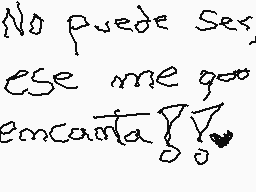 No puede ser,
ese me
encanta!!